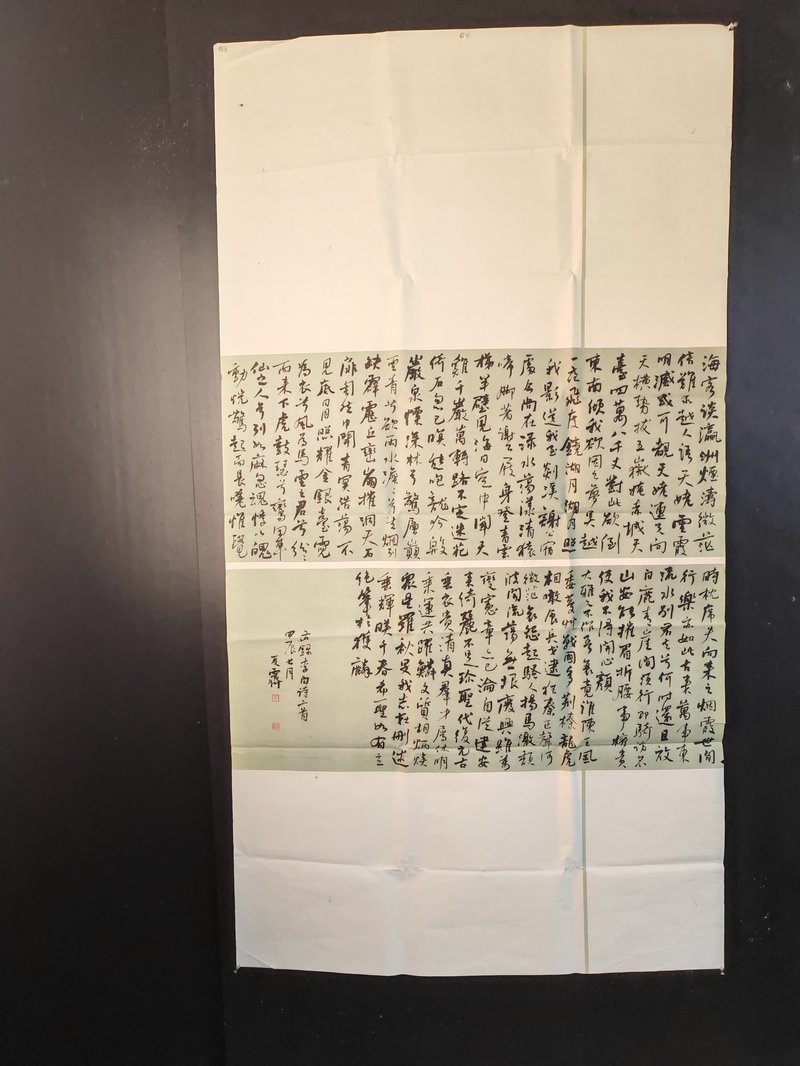 海客談瀛洲煙濤微茫
信難求越人語天姥雲霞
明滅或可覩天姥連天向
天橫勢拔五嶽掩赤城天
臺四萬八千丈對此欲倒
東南傾我欲因之夢吳越
一夜飛度鏡湖月湖月照
我影送我至剡溪謝公宿
處今尚在淥水蕩漾清猿
啼腳著謝公屐身登青雲
梯半壁見海日空中聞天
雞千巖萬轉路不定迷花
倚石忽已暝熊咆龍吟殷
巖泉慄深林兮驚層巔
雲青兮欲雨水澹澹兮生烟列
缺霹靂丘巒崩摧洞天石
扉訇然中開青冥浩蕩不
見底日月照耀金銀臺霓
為衣兮風為馬雲之君兮紛紛
而來下虎鼓瑟兮鸞回車
仙之人兮列如麻忽魂悸以魄
動恍驚起而長嗟惟覺
時枕席失向來之烟霞世間
行樂亦如此古來萬事東
流水別君去兮何時還且放
白鹿青崖間須行即騎訪名
山安能摧眉折腰事權貴
使我不得開心顏
大雅久不作吾衰竟誰陳王風
委蔓草戰國多荊榛龍虎
相啖食兵戈逮狂秦正聲何
微茫哀怨起騷人揚馬激頹
波開流蕩無垠廢興雖萬
變憲章亦已淪自從建安
來綺麗不足珍聖代復元古
垂衣貴清真羣才屬休明
乘運共躍鱗文質相炳煥
眾星羅秋旻我志在刪述
垂輝映千春希聖如有立
絕筆於獲麟
錄李白詩二首
甲辰七月